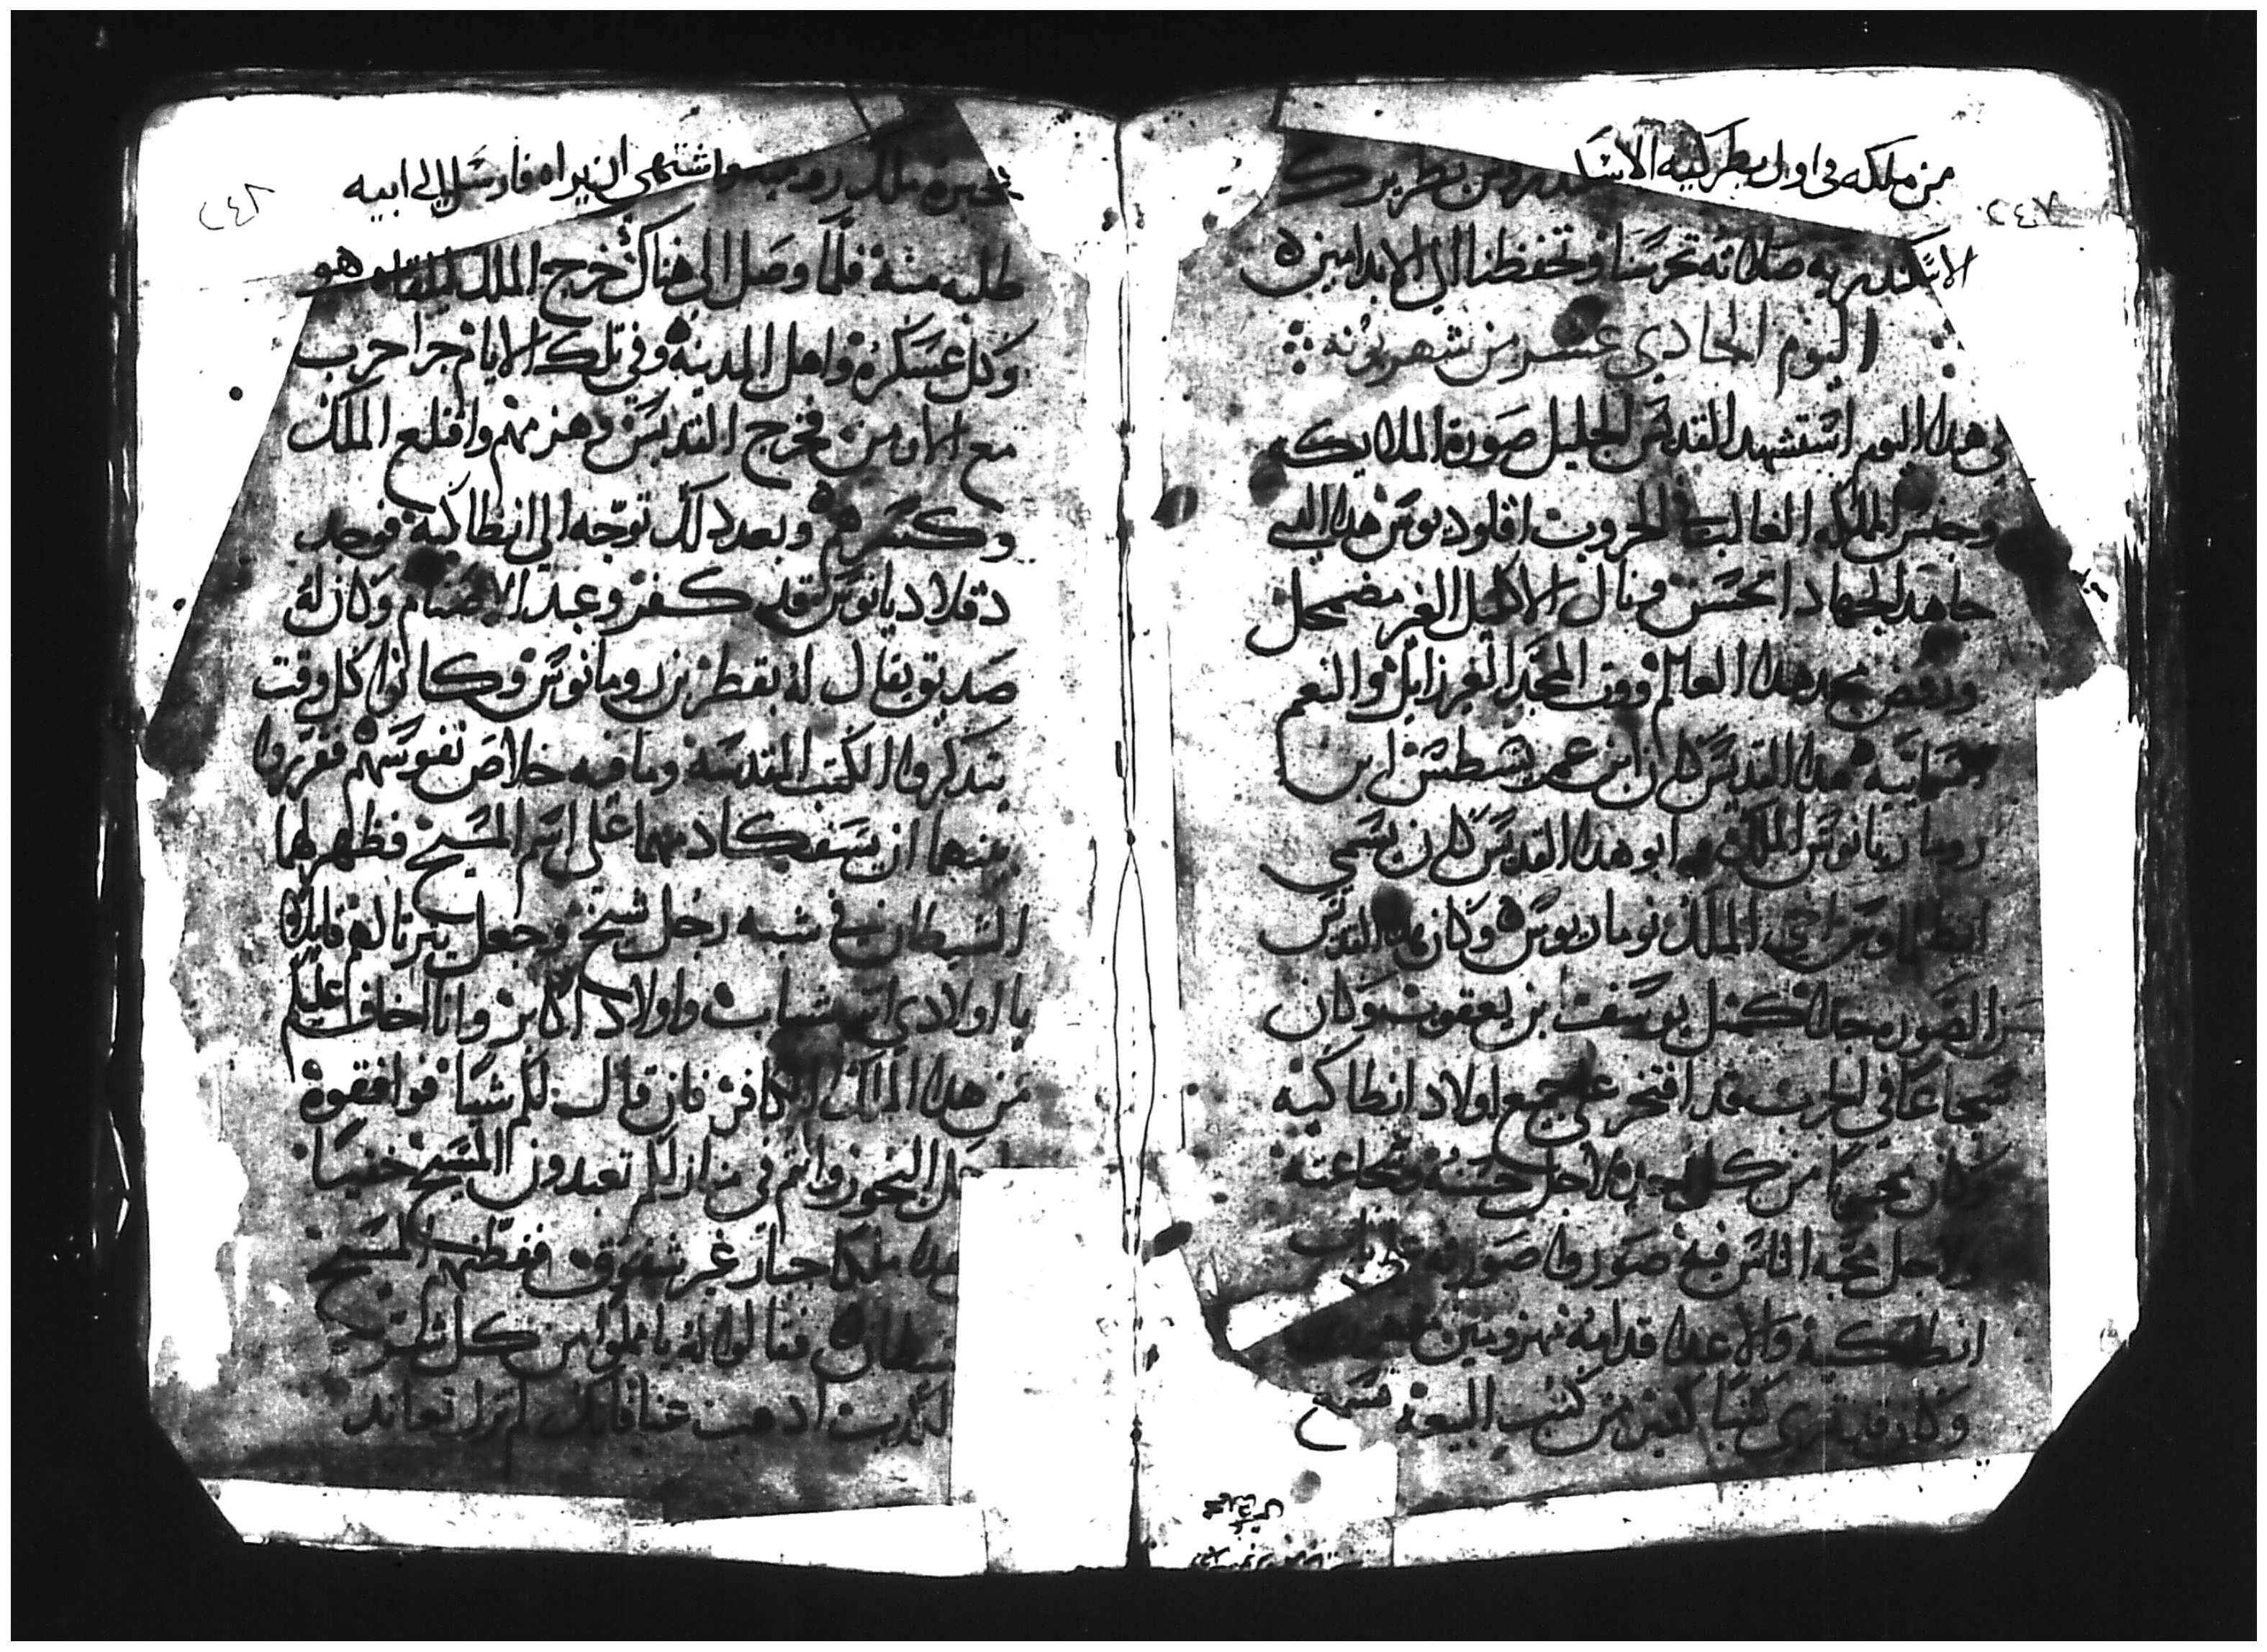 من ملكه في اول بطركية الاسكندروس بطريرك
٢٤٧
الاسكندريه صلاته تحرسنا وتحفظنا الى الابد امين
اليوم الحادي عشر من شهر بونه
في هدا اليوم استشهد القديس الجليل صورة الملايكه
وجنس الملوك الغالب الحروب اقلوديوس هدا الدي
جاهد الجهاد الحسن ونال الاكليل الغير مضمحل
ورفض مجد هدا العالم وورت المجد الغير زايل والنعم
السماييه هدا القديس كان ابن عم يسطس ابن
روما نوس الملك ابو هدا القديس كان يسمى
ابطلماوس اخي الملك نوماريوس وكان هدا القديس
حسن الصوره جدا كمثل يوسف ابن يعقوب وكان
شجاعا في الحرب قد افتخر على جميع اولاد انطاكيه
وكان محبوبا من كل احد لاجل حسنه وشجاعته
ولاجل محبه الناس فيه صوروا صورته على باب
انطاكيه والاعدا قدامه مهزومين
وكان قد قرى كتبا كتير من كتب البيعه فسمع
٢٤٨
بخبره ملك روميه واشتهى ان يراه فارسل الى ابيه
طلبه منه فلما وصل الى هناك خرج الملك للقاه هو
وكل عسكره واهل المدينه وفي تلك الايام جرا حرب
مع الارمن فخرج القديس وهزمهم واقلع الملك
وكسرهم وبعد دلك توجه الى انطاكيه فوجد
دقلاديانوس قد كفر وعبد الاصنام وكان له
صديق يقال له بقطر بن رومانوس وكانوا كل وقت
يتدكروا الكتب المقدسه وما فيه خلاص نفوسهم فقرروا
بينهما ان يسفكا دمهما على اسم المسيح فظهر لهما
الشيطان في شبه رجل شيخ وجعل يترتا لهم قايلا
يا اولادي انتم شباب واولاد اكابر وانا اخاف عليكم
من هدا الملك الكافر فان قال لكم شيا فوافقوه
البخور وانتم في منازلكم تعبدون المسيح خفيا
هدا ملكا جبار غير شفوق ففطنهم المسيح
شيطان فقالوا له يا مملوا من كل شر
الكدب ادهب عنا فانك لم تزل تعاند